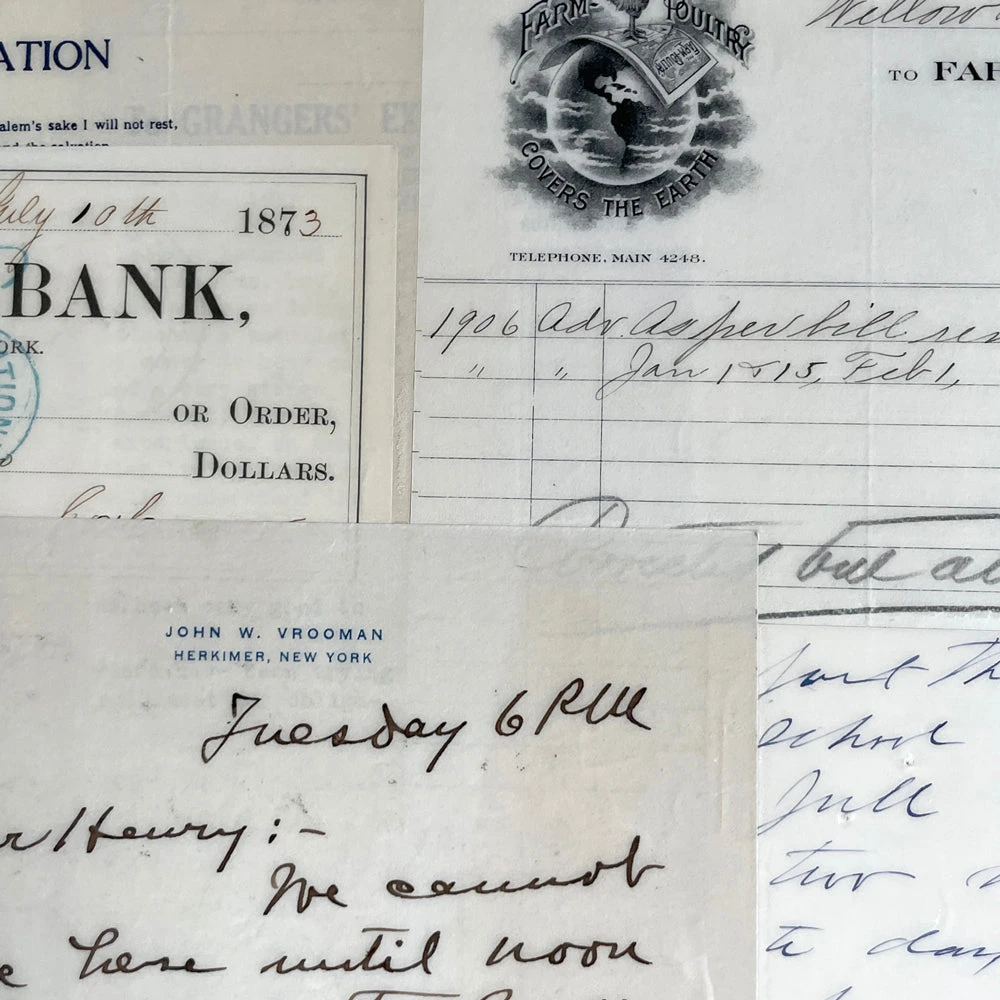 ATION
alem's sake I will not rest,
GRANGERS' EX
July 10th 1873
BANK,
ORK.
TION.
OR ORDER,
DOLLARS.
FARM-POULTRY
FARM-POULTRY
COVERS THE EARTH
TELEPHONE, MAIN 4248.
Willow
TO FAR
1906 Adv. As per bill ren
" " Jan 1 & 15, Feb 1,
but
JOHN W. VROOMAN
HERKIMER, NEW YORK
Tuesday 6 PM
r Henry:-
We cannot
e here until noon
school
full
two
to day